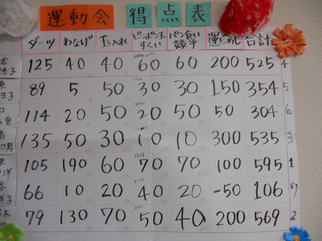 運動会 得点表
ダーツ わなげ 玉入れ ピンポン玉すくい パン食い競争 合計
125 40 40 60 60 200 525 4
89 5 50 30 30 150 354 5
114 20 50 20 50 50 304 6
135 50 30 10 10 300 535 3
105 190 60 70 70 100 595 1
66 10 20 40 20 -50 106 7
79 130 70 50 40 200 569 2